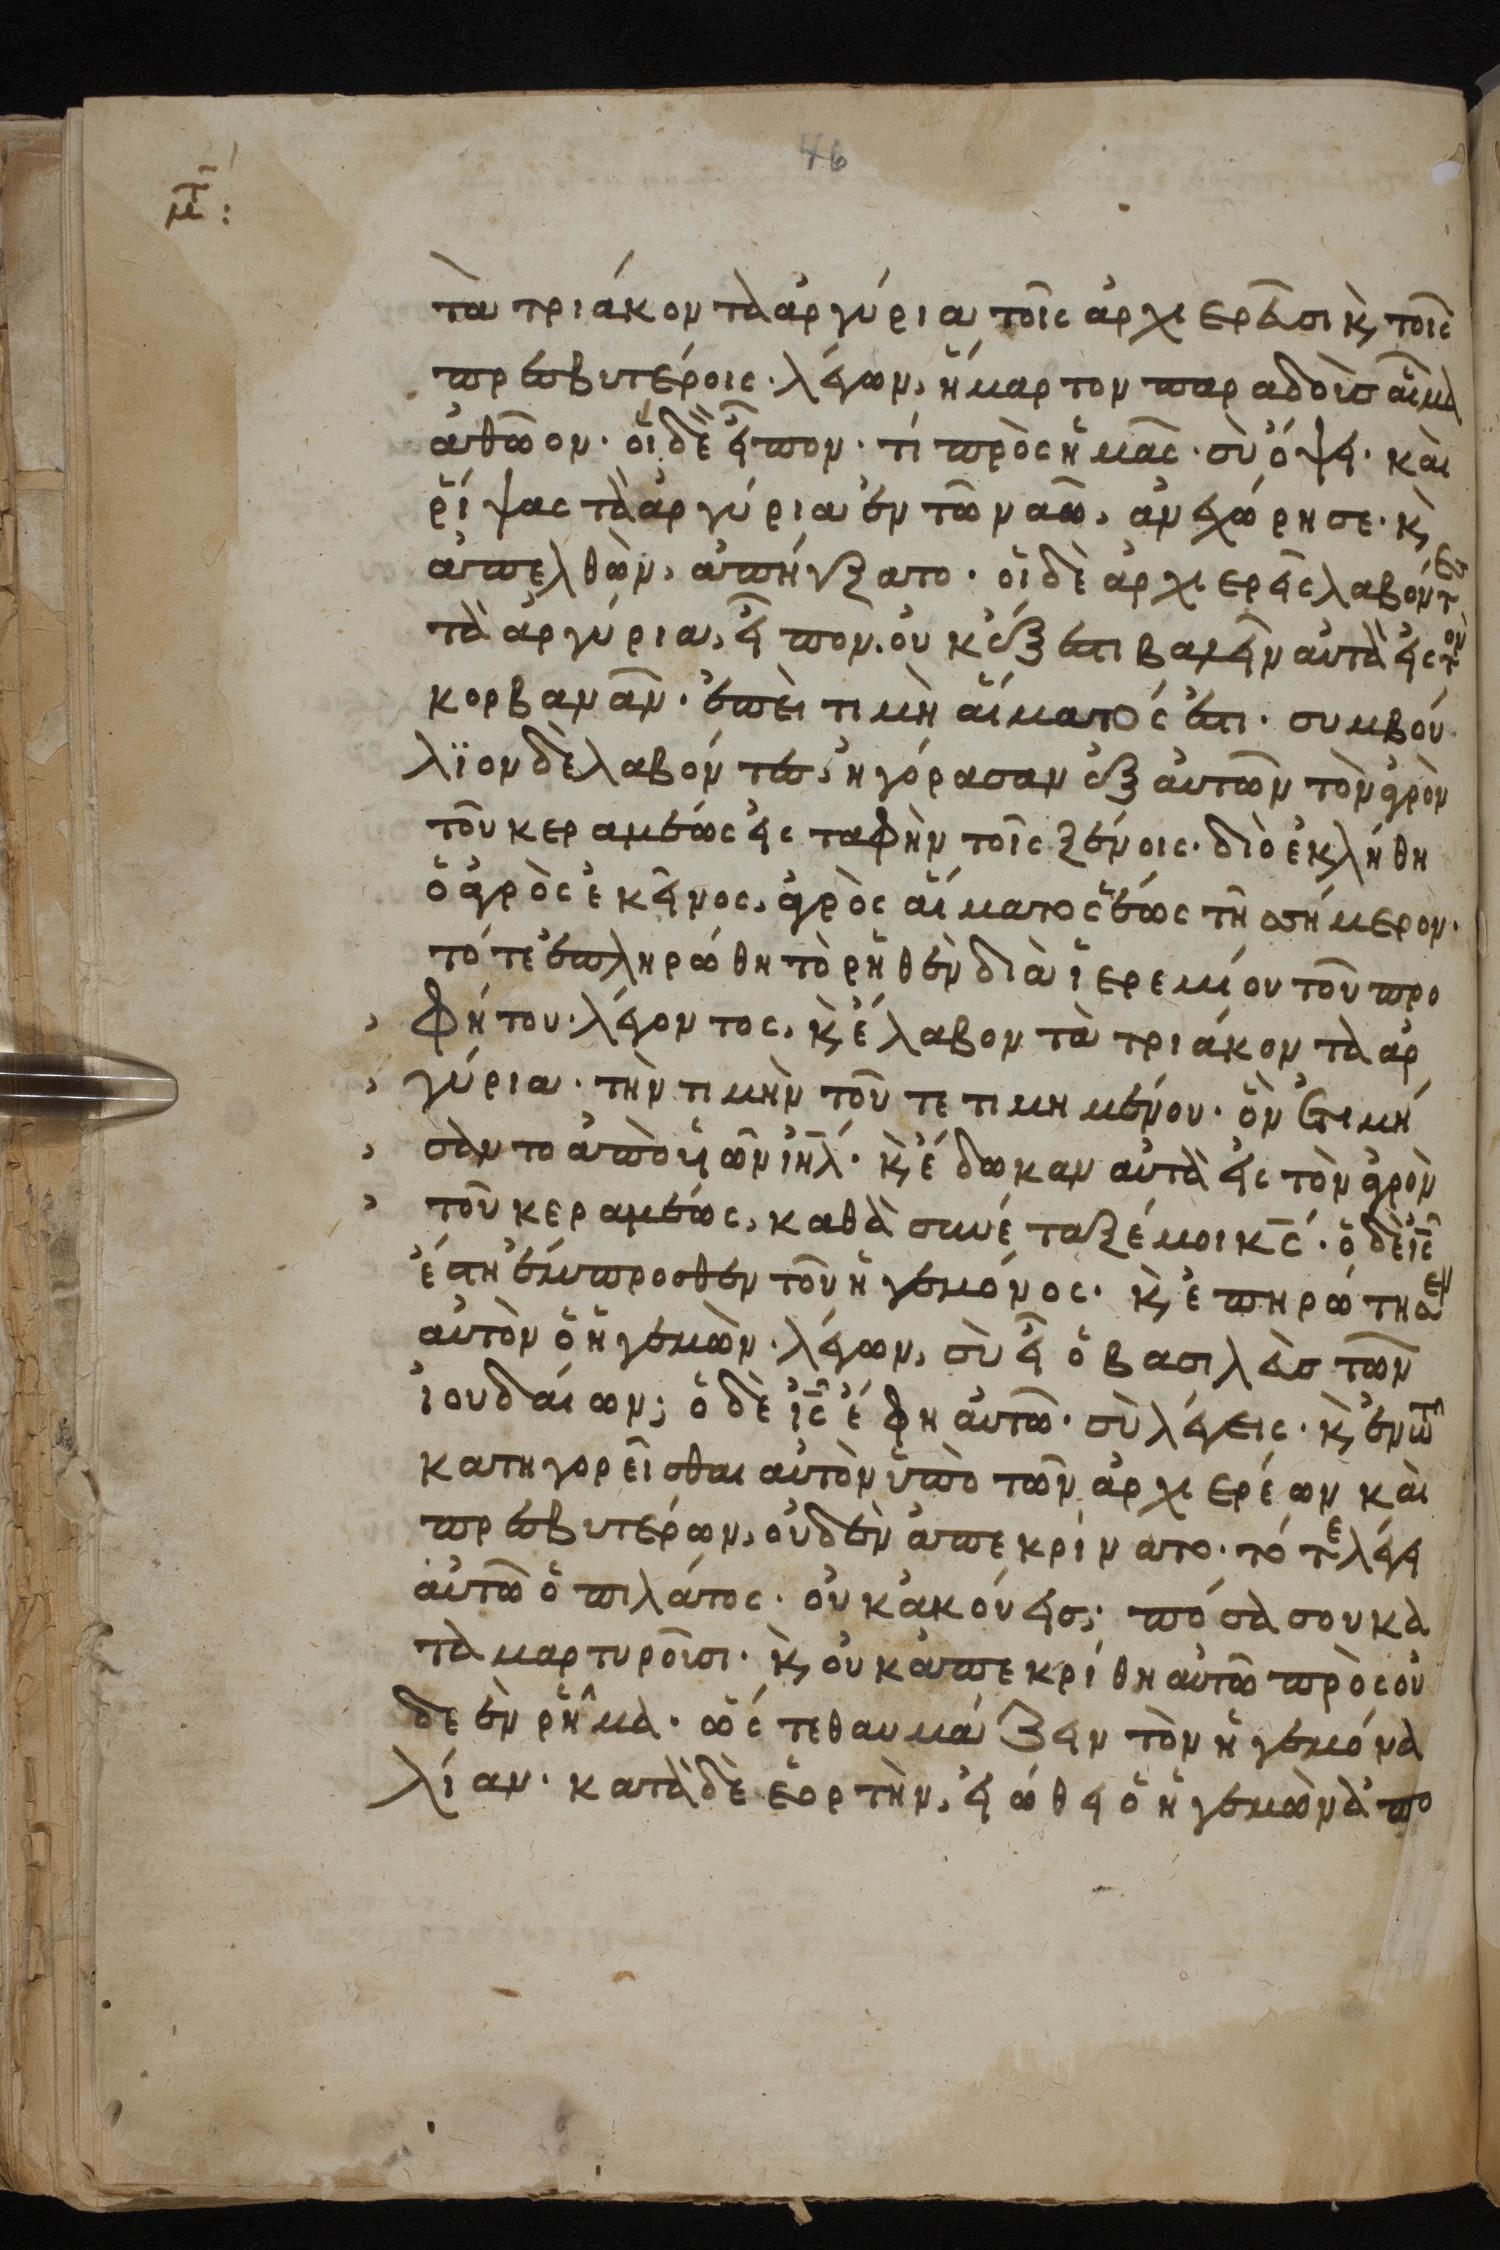 76
μτ̅:
τὰ τριάκοντα ἀργύρια τοῖς ἀρχιερεῦσι κ̀ τοῖς
πρεσβυτέροις· λέγων, ἥμαρτον παραδοὺς αἷμα
ἀθῶον· οἱ δὲ εἶπον· τί πρὸς ἡμᾶς· σὺ ὄψει· καὶ
ῥίψας τὰ ἀργύρια ἐν τῶ ναῶ, ἀνεχώρησε· κ̀
ἀπελθὼν, ἀπήγξατο· οἱ δὲ ἀρχιερεῖς λαβόντες
τὰ ἀργύρια, εἶπον. οὐκ ἔξεστι βαλεῖν αὐτὰ εἰς τὸν
κορβανᾶν· ἐπεὶ τιμὴ αἵματός ἐστι· συμβού
λϊον δὲ λαβόντες, ἠγόρασαν ἐξ αὐτῶν τὸν ἀγρὸν
τοῦ κεραμέως εἰς ταφὴν τοῖς ξένοις· διὸ ἐκλήθη
ὁ ἀγρὸς ἐκεῖνος, ἀγρὸς αἵματος ἕως τῆς σήμερον·
τότε ἐπληρώθη τὸ ῥηθὲν διὰ ἱερεμίου τοῦ προ
φήτου· λέγοντος, κ̀ ἔλαβον τὰ τριάκοντα ἀρ
γύρια· τὴν τιμὴν τοῦ τετιμημένου· ὃν ἐτιμή
σαντο ἀπὸ υἱῶν ἰη̅λ· κ̀ ἔδωκαν αὐτὰ εἰς τὸν ἀγρὸν
τοῦ κεραμέως, καθὰ συνέταξέ μοι κ̅ς· ὁ δὲ ἰ̅ς
ἔστη ἔμπροσθεν τοῦ ἡγεμόνος· κ̀ ἐπηρώτησεν
αὐτὸν ὁ ἡγεμὼν· λέγων, σὺ εἶ ὁ βασιλεὺς τῶν
ἰουδαίων; ὁ δὲ ἰ̅ς ἔφη αὐτῶ· σὺ λέγεις· κ̀ ἐν τῶ
κατηγορεῖσθαι αὐτὸν ὑπὸ τῶν ἀρχιερέων καὶ
πρεσβυτέρων, οὐδὲν ἀπεκρίνατο· τότε λέγει
αὐτῶ ὁ πιλάτος· οὐκ ἀκούεις; πόσα σου κα
ταμαρτυροῦσι· κ̀ οὐκ ἀπεκρίθη αὐτῶ πρὸς οὐ
δὲ ἓν ῥῆμα· ὥστε θαυμάζειν τὸν ἡγεμόνα
λίαν· κατὰ δὲ ἑορτὴν, εἰώθει ὁ ἡγεμὼν ἀπο